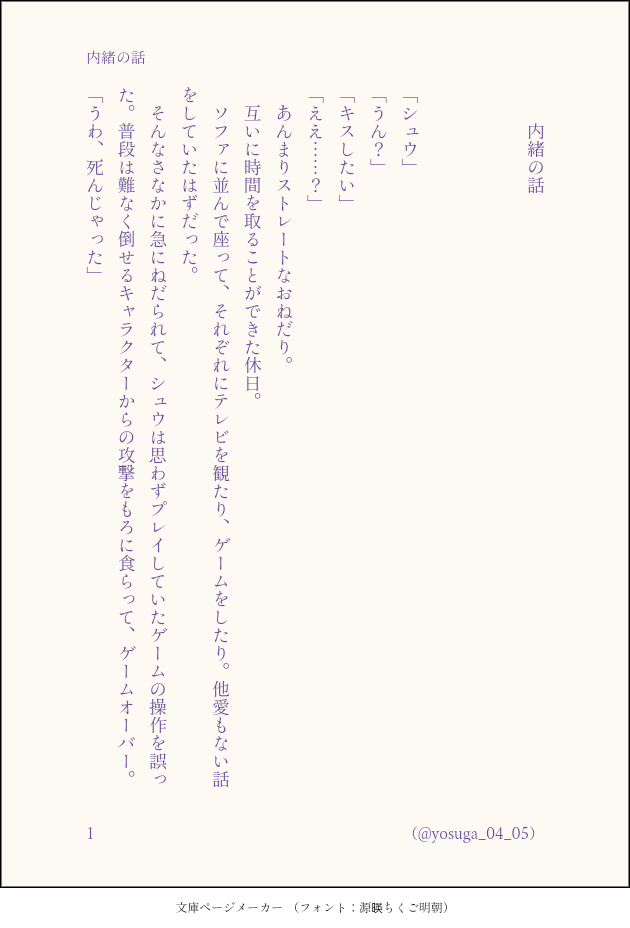 内緒の話
内緒の話
「シュウ」
「うん？」
「キスしたい」
「ええ……？」
あんまりストレートなおねだり。
互いに時間を取ることができた休日。
ソファに並んで座って、それぞれにテレビを観たり、ゲームをしたり。他愛もない話
をしていたはずだった。
そんなさなかに急にねだられて、シュウは思わずプレイしていたゲームの操作を誤っ
た。普段は難なく倒せるキャラクターからの攻撃をもろに食らって、ゲームオーバー。
「うわ、死んじゃった」
1
（@yosuga_04_05）
文庫ページメーカー （フォント：源暎ちくご明朝）